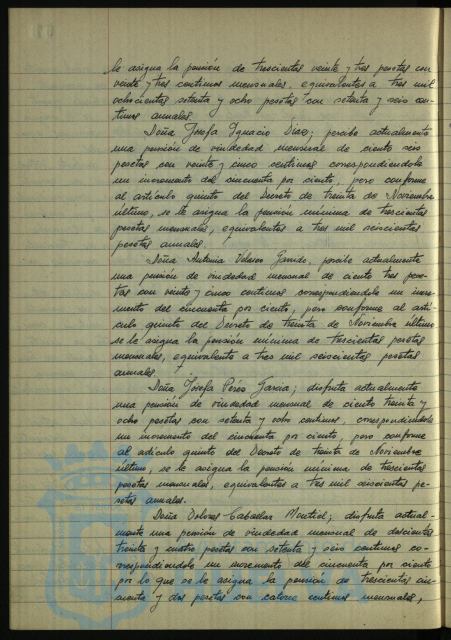 le asigna la pensión de trescientas veinte y tres pesetas con
veinte y tres centimos mensuales, equivalentes a tres mil
ochocientas setenta y ocho pesetas con setenta y seis cen-
timos anuales.
Doña Josefa Ignacio Diaz; percibe actualmente
una pensión de viudedad mensual de ciento seis
pesetas con veinte y cinco centimos correspondiendole
un incremento del cincuenta por ciento, pero conforme
al articulo quinto del Decreto de treinta de Noviembre
último, se le asigna la pensión mínima de trescientas
pesetas mensuales, equivalentes a tres mil seiscientas
pesetas anuales.
Doña Antonia Velasco Garrido, percibe actualmente
una pensión de viudedad mensual de ciento tres pese-
tas con veinte y cinco centimos correspondiendole un incre-
mento del cincuenta por ciento, pero conforme al artí-
culo quinto del Decreto de treinta de Noviembre último
se le asigna la pensión mínima de trescientas pesetas
mensuales, equivalente a tres mil seiscientas pesetas
anuales.
Doña Josefa Pérez Garcia; disfruta actualmente
una pensión de viudedad mensual de ciento treinta y
ocho pesetas con setenta y ocho centimos, correspondiendole
un incremento del cincuenta por ciento, pero conforme
al articulo quinto del Decreto de treinta de Noviembre
último, se le asigna la pensión mínima de trescientas
pesetas mensuales, equivalentes a tres mil seiscientas pe-
setas anuales.
Doña Dolores Caballar Montiel; disfruta actual-
mente una pensión de viudedad mensual de doscientas
treinta y cuatro pesetas con setenta y seis centimos co-
rrespondiendole un incremento del cincuenta por ciento
por lo que se le asigna la pensión de trescientas cin-
cuenta y dos pesetas con catorce centimos mensuales,